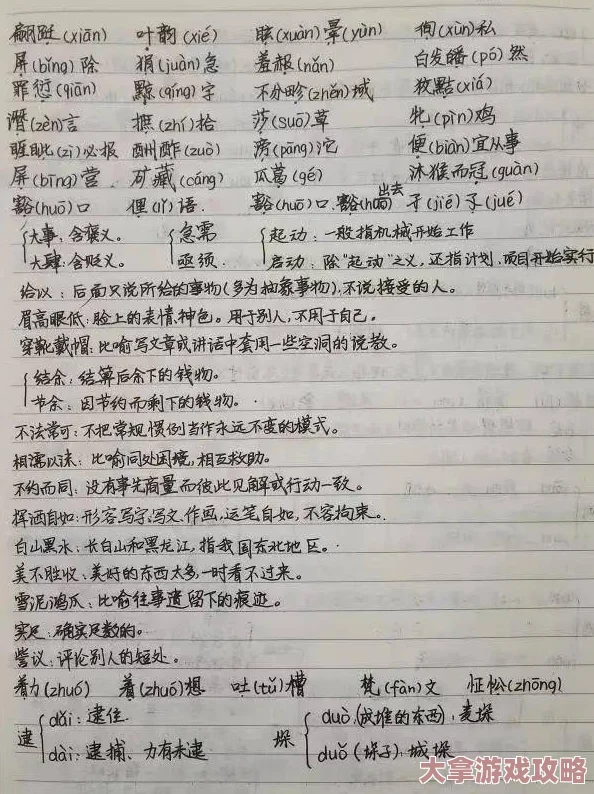 翩跹(xiān) 叶韵(xié) 眩(xuàn)晕(yùn) 徇(xùn)私
屏(bǐng)除 狷(juàn)急 羞赧(nǎn) 白发皤(pó)然
罪愆(qiān) 黥(qíng)字 不分畛(zhěn)域 狡黠(xiá)
谮(zèn)言 摭(zhí)拾 莎(suō)草 牝(pìn)鸡
睚眦(zì)必报 酬酢(zuò) 滂(pāng)沱 便(biàn)宜从事
屏(bīng)营 矿藏(cáng) 瓜葛(gé) 沐猴而冠(guàn)
豁(huō)口 俚(lǐ)语. 豁(huō)口. 豁(huō)出去 孑(jié)孓(jué)
大事:含褒义。 急需 起动:一般指机械开始工作
大肆:含贬义。 亟须 启动:除"起动"之义,还指计划,项目开始实行
给议:后面只说所给的事物(多为抽象事物),不说接受的人。
眉高眼低:脸上的表情,神色。用于别人,不用于自己。
穿靴戴帽:比喻写文章或讲话中套用一些空洞的说教。
结余:结算后余下的钱物。
节余:因节约而剩下的钱物。
不法常可:不把常规惯例当作永远不变的模式。
相濡以沫:比喻同处困境,相互救助。
不约而同:没有事先商量而彼此见解或行动一致。
挥洒自如:形容写字,写文,作画,运笔自如,不容拘束。
白山黑水:长白山和黑龙江,指我国东北地区。
美不胜收:美好的东西太多,一时看不过来。
雪泥鸿爪:比喻往事遗留下的痕迹。
实足:确实足数的。
訾议:评论别人的短处。
着力(zhuó) 着(zhuó)想 吐(tǔ)槽 梵(fàn)文 怔忪(zhōng)
逮 dǎi:逮住 垛 duò(成堆的东西):麦垛
dài:逮捕、力有未逮 duǒ(垛子):城垛
大拿游戏攻略